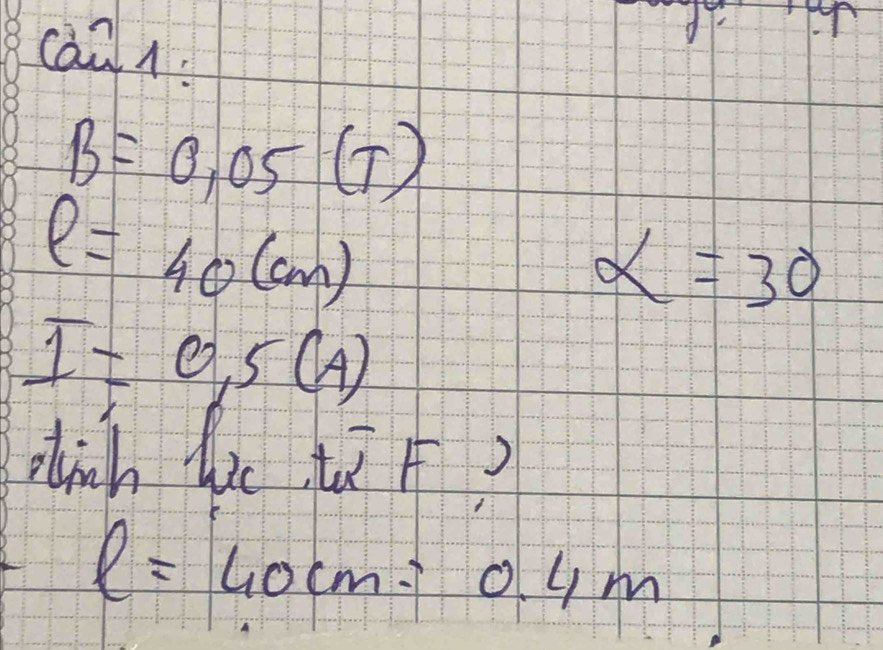 Câu 1:
B = 0,05 (T)
l = 40 (cm)
α = 30
I = 0,5 (A)
tính lực từ F ?
l = 40cm = 0.4 m